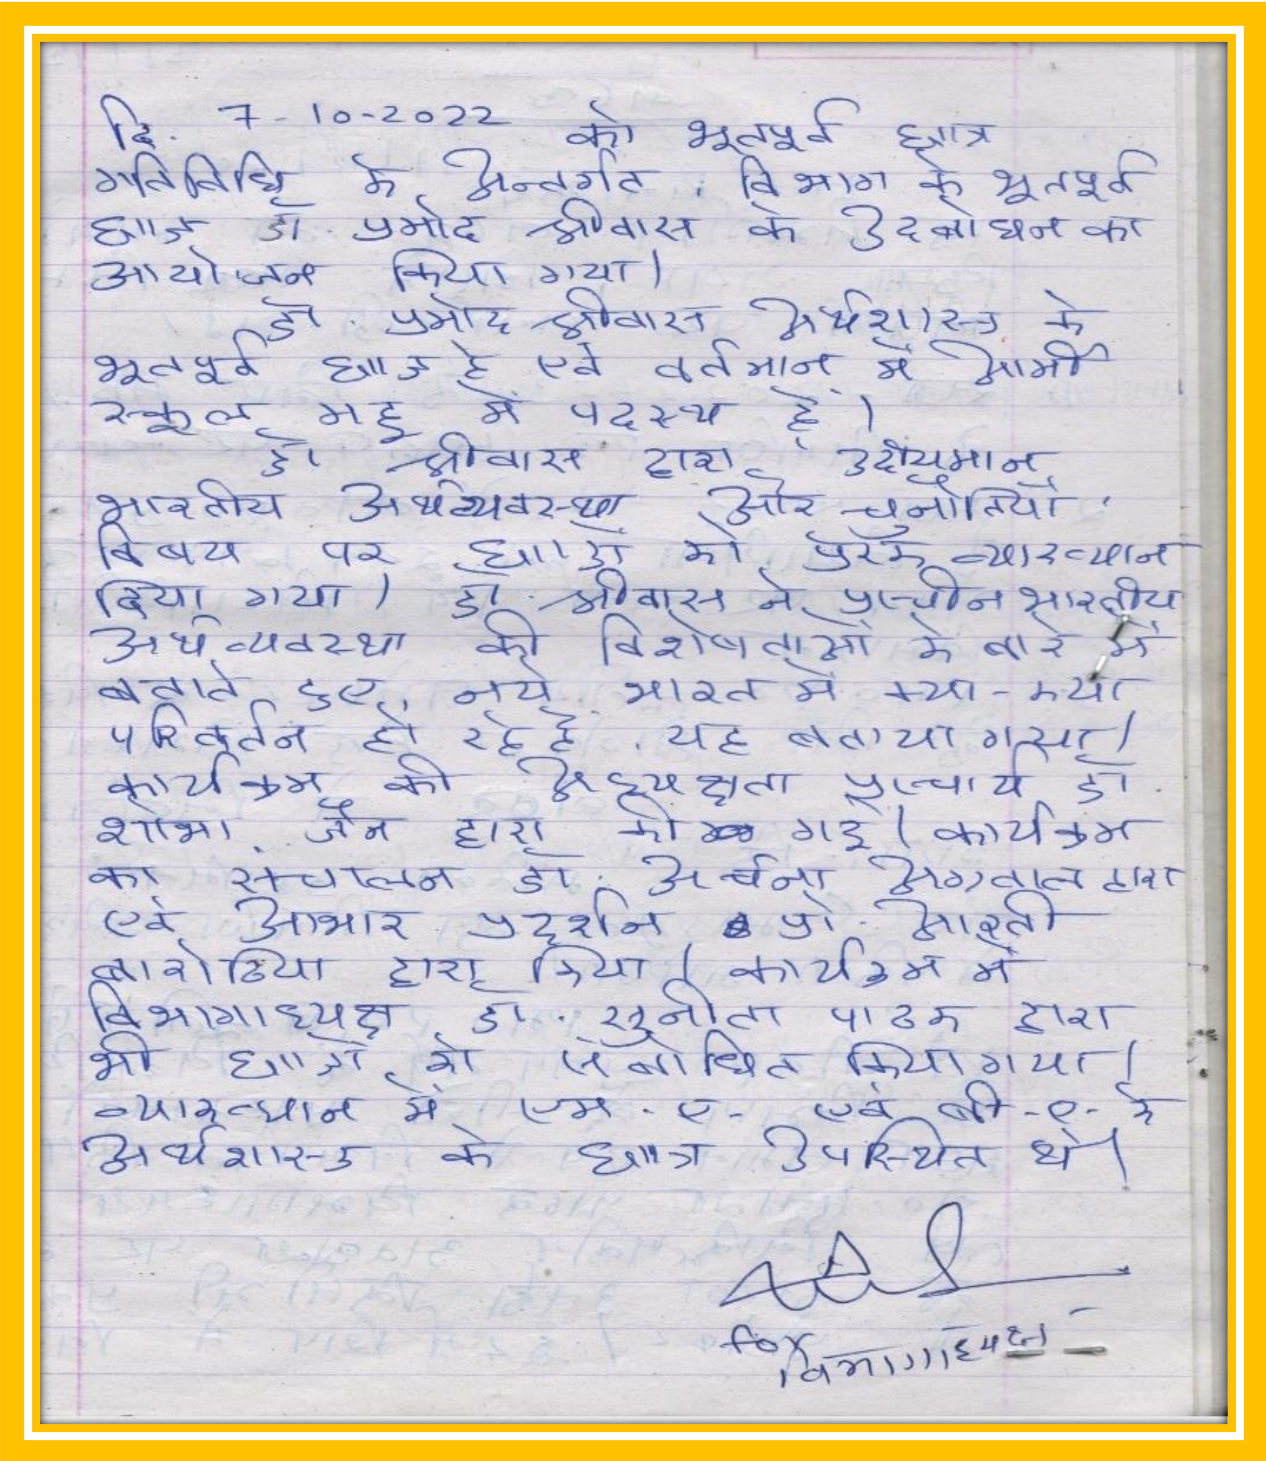 दि. 7-10-2022 को भूतपूर्व छात्र
गतिविधि के अन्तर्गत विभाग के भूतपूर्व
छात्र डॉ. प्रमोद श्रीवास के उदबोधन का
आयोजन किया गया।
डॉ. प्रमोद श्रीवास अर्थशास्त्र के
भूतपूर्व छात्र है एवं वर्तमान में आर्मी
स्कूल महू में पदस्थ हैं।
डॉ श्रीवास द्वारा उदीयमान
भारतीय अर्थव्यवस्था और चुनौतियाँ
विषय पर छात्रों को प्रेरक व्याख्यान
दिया गया। डॉ. श्रीवास ने प्राचीन भारतीय
अर्थव्यवस्था की विशेषताओं के बारे में
बताते हुए नये भारत में क्या-क्या
परिवर्तन हो रहे है, यह बताया गया।
कार्यक्रम की अध्यक्षता प्राचार्य डॉ.
शोभा जैन द्वारा की गई। कार्यक्रम
का संचालन डॉ. अर्चना अग्रवाल द्वारा
एवं आभार प्रदर्शन प्रो. आरती
बारोठिया द्वारा किया। कार्यक्रम में
विभागाध्यक्ष डॉ. सुनीता पाठक द्वारा
भी छात्रों को संबोधित किया गया।
व्याख्यान में एम.ए. एवं बी-ए- के
अर्थशास्त्र के छात्र उपस्थित थे।
for
विभागाध्यक्ष